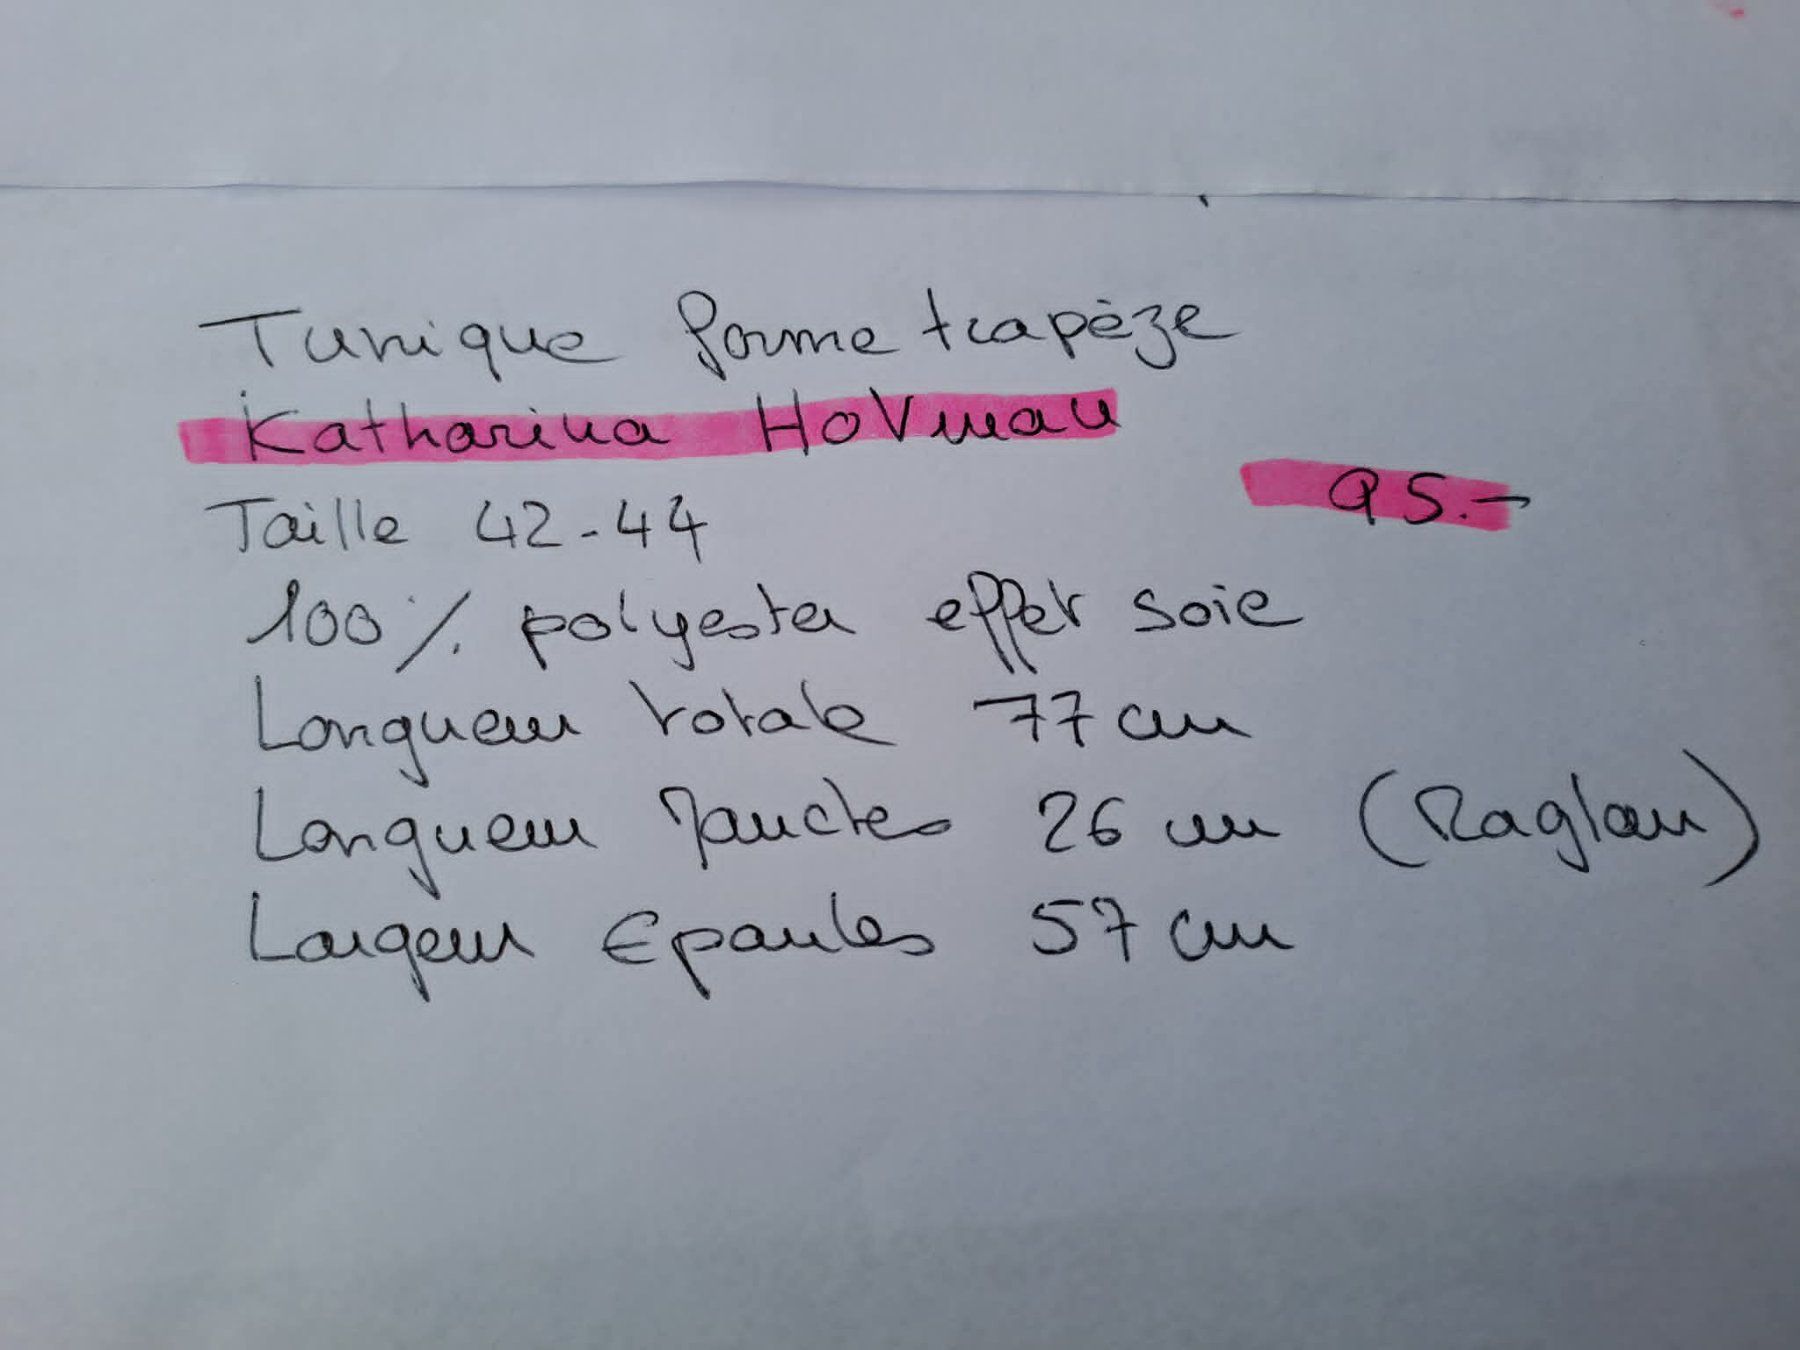 Tunique forme trapèze
Katharina HoVman
95.-
Taille 42-44
100% polyester effet soie
Longueur totale 77 cm
Longueur Manches 26 cm (Raglan)
Largeur Epaules 57 cm